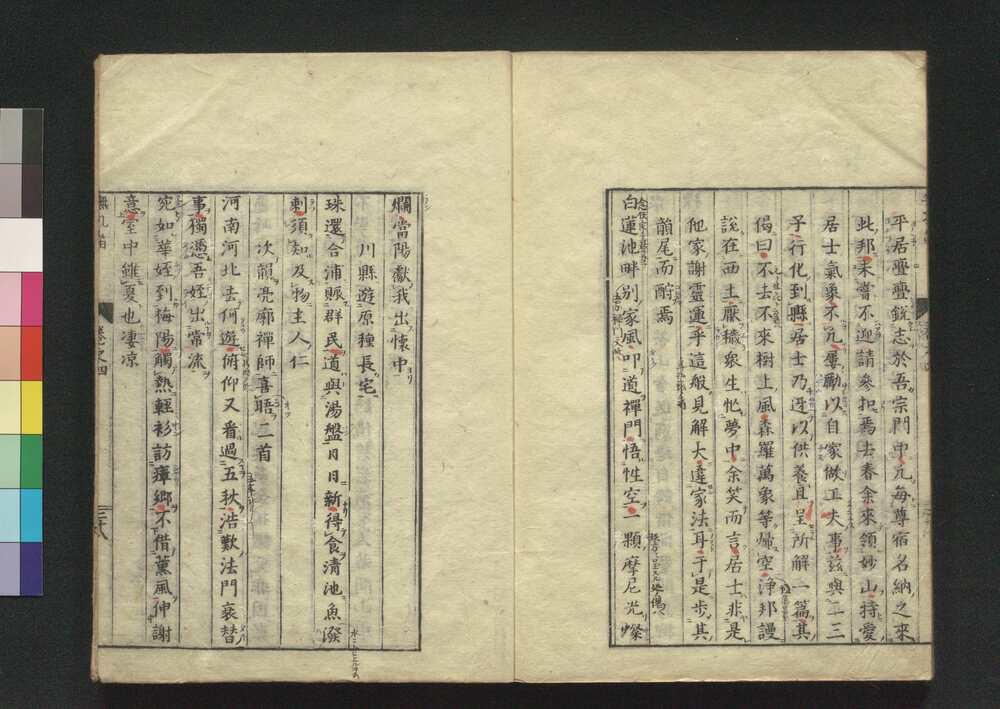 平居亹亹銳志於吾宗門中凢每尊宿名納之來
此邦未嘗不迎請參扣焉去春余來領妙山持愛
居士氣象不凢屢勵以自家做工夫事茲與二三
子行化到縣居士乃迓以供養且呈所解一篇其
偈曰不去不來樹上風森羅萬象等歸空淨邦謾
說在西土厭穢衆生忙夢中余笑而言居士非是
他家謝靈運乎這般見解大違家法耳于是步其
韻尾而酧焉
白蓮池畔別家風叩道禪門悟性空一顆摩尼光燦
爛當陽獻我出懷中
川縣遊原種長宅
珠還合浦賑群民道與湯盤日日新得食清池魚潑
剌須知及物主人仁
次韻亮廓禪師喜晤二首
河南河北去何遊俯仰又看過五秋浩歎法門衰替
事獨憑吾姪出常流
宛如華姪到梅陽觸熱輕衫訪瘴鄉不借薰風伸謝
意堂中雖夏也凄凉
卷之四